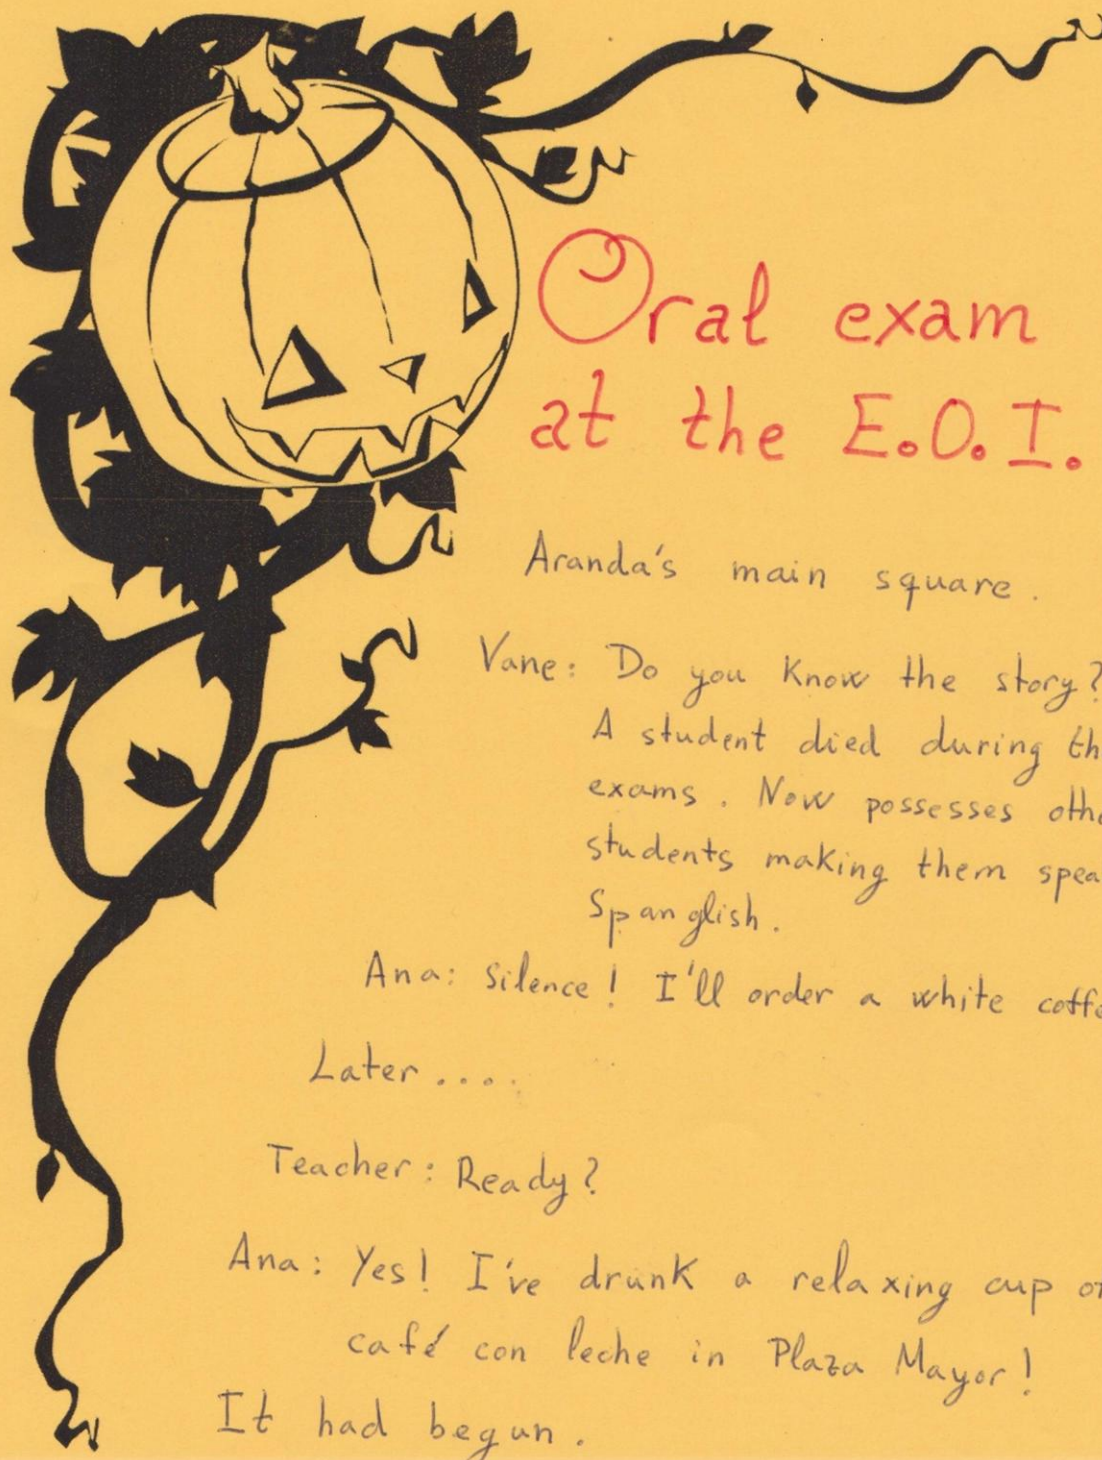 Oral exam
at the E.O.I.
Aranda's main square.
Vane: Do you know the story?
A student died during th
exams. Now possesses oth
students making them spea
Spanglish.
Ana: Silence! I'll order a white coff
Later....
Teacher: Ready?
Ana: Yes! I've drunk a relaxing cup of
café con leche in Plaza Mayor!
It had begun.